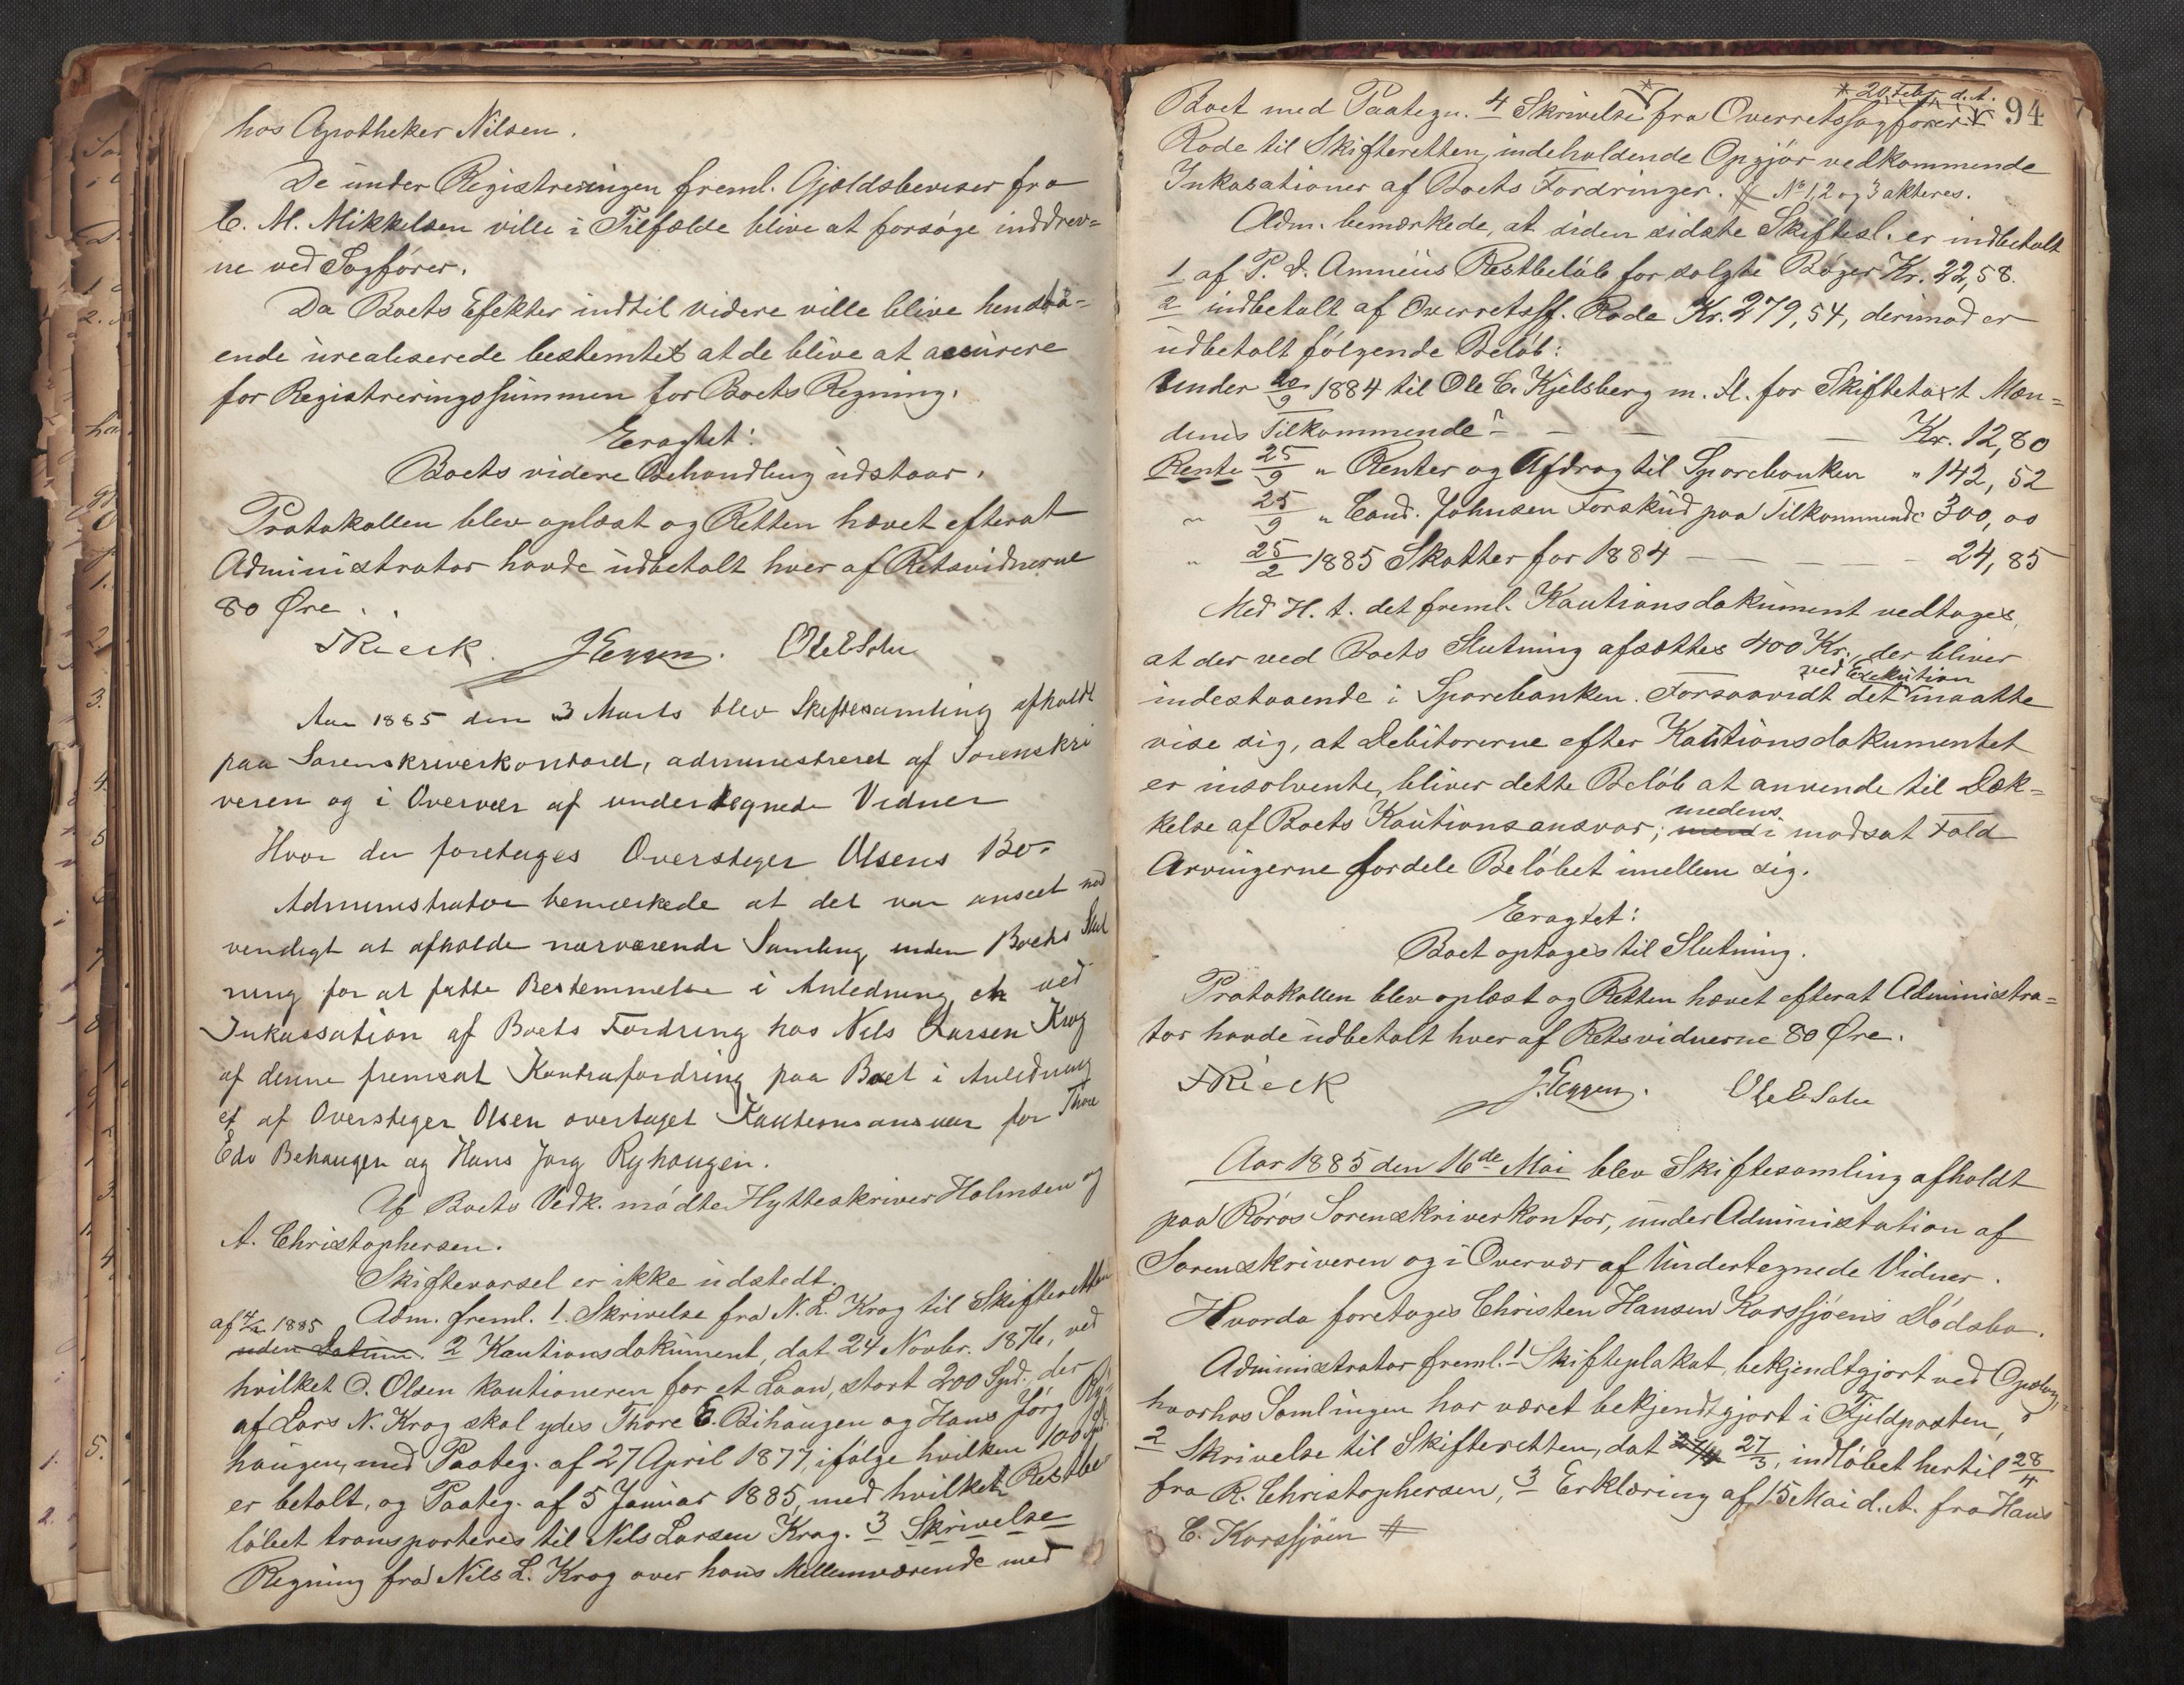 hos Apotheker Nilsen.
De under Registreringen freml. Gjældsbeviser fra
C. M. Mikkelsen ville i Tilfælde blive at forsøge inddrev=
ne ved Sagfører.
Da Boets Efekter indtil videre ville blive henstaa-
ende urealiserede bestemtes at de blive at assurere
for Registreringssummen for Boets Regning.
Eragtet:
Boets videre Behandling udstaar.
Protokollen blev oplæst og Retten hævet efterat
Administrator havde udbetalt hver af Retsvidnerne
80 Øre.
Rieck. J Eggen. Ole
Aar 1885 den 3 Marts blev Skiftesamling afholdt
paa Sorenskriverkontoret, administreret af Sorenskri
veren og i Overvær af undertegnede Vidner
Hvor da foretages Overstiger Olsens Bo.
Administrator bemærkede at det var anseet nød
vendigt at afholde nærværende Samling inden Boets Slut
ning for at fatte Bestemmelse i Anledning en ved
Inkassation af Boets Fordring hos Nils Larsen Krog
af denne fremsat Kontrafordring paa Boet i Anledning
et af Overstiger Olsen overtaget Kautionsansvar for Thore
Edv Behaugen og Hans Jørg Ryhaugen.
Af Boets Vedk. mødte Hytteskriver Holmsen og
A. Christophersen.
Skiftevarsel er ikke udstedt.
Adm. freml. 1. Skrivelse fra N. L. Krog til Skifteretten
af 4/2 1885
uden Datum. 2 Kautionsdokument, dat 24 Novbr. 1876, ved
hvilket O. Olsen kautioneren for et Laan, stort 200 Spd., der
af Lars N. Krog skal ydes Thore E. Bihaugen og Hans Jørg Ry-
haugen, med Paateg. af 27 April 1877, ifølge hvilken 100 Spd.
er betalt, og Paateg. af 5 Januar 1885, med hvilket Restbe
løbet transporteres til Nils Larsen Krog. 3 Skrivelse
Regning fra Nils L. Krog over hans Mellemværende med
* 20 Febr. d. A.
94
Boet med Paategn. 4 Skrivelse * fra Overretssagfører
Rode til Skifteretten, indeholdende Opgjør vedkommende
Inkasationer af Boets Fordringer. # No 1, 2 og 3 akteres.
Adm. bemærkede, at siden sidste Skiftesl. er indbetalt
1 af P. d. Amnéus Restbeløb for solgte Bøger Kr. 22,58.
2 indbetalt af Overretssf. Rode Kr. 279,54, derimod er
udbetalt følgende Beløb:
Under 20/9 1884 til Ole E. Kjelsberg m. fl. for Skiftetaxt Mæn=
denes Tilkommende - - - - Kr. 12,80
Rente 25/9 " Renter og Afdrag til Sparebanken " 142,52
" 25/9 " Cand. Johnsen Forskud paa Tilkommende 300,00
" 25/2 1885 Skatter for 1884 - - - - 24,85
Med H. t. det freml. Kautionsdokument vedtages,
at der ved Boets Slutning afsættes 400 Kr., der bliver
ved Exekution
indestaaende i Sparebanken. Forsaavidt det maatte
vise sig, at Debitorerne efter Kautionsdokumentet
er insolvente, bliver dette Beløb at anvende til Dæk=
medens
kelse af Boets Kautionsansvar; men i modsat Fald
Arvingerne fordele Beløbet imellem sig.
Eragtet:
Boet optages til Slutning.
Protokollen blev oplæst og Retten hævet efterat Administra=
tor havde udbetalt hver af Retsvidnerne 80 Øre.
Rieck J. Eggen. Ole
Aar 1885 den 16de Mai blev Skiftesamling afholdt
paa Røros Sorenskriverkontor, under Administation af
Sorenskriveren og i Overvær af Undertegnede Vidner.
Hvorda foretages Christen Hansen Korssjøens Dødsbo.
Administrator freml. 1 Skifteplakat, bekjendtgjort ved Opslag,
hvorhos Samlingen har været bekjendtgjort i Fjeldposten,
2 Skrivelse til Skifteretten, dat 27/4 27/3, indløbet hertil 28/4
fra R. Christophersen, 3 Erklæring af 15 Mai d. A. fra Hans
C. Korssjøen #